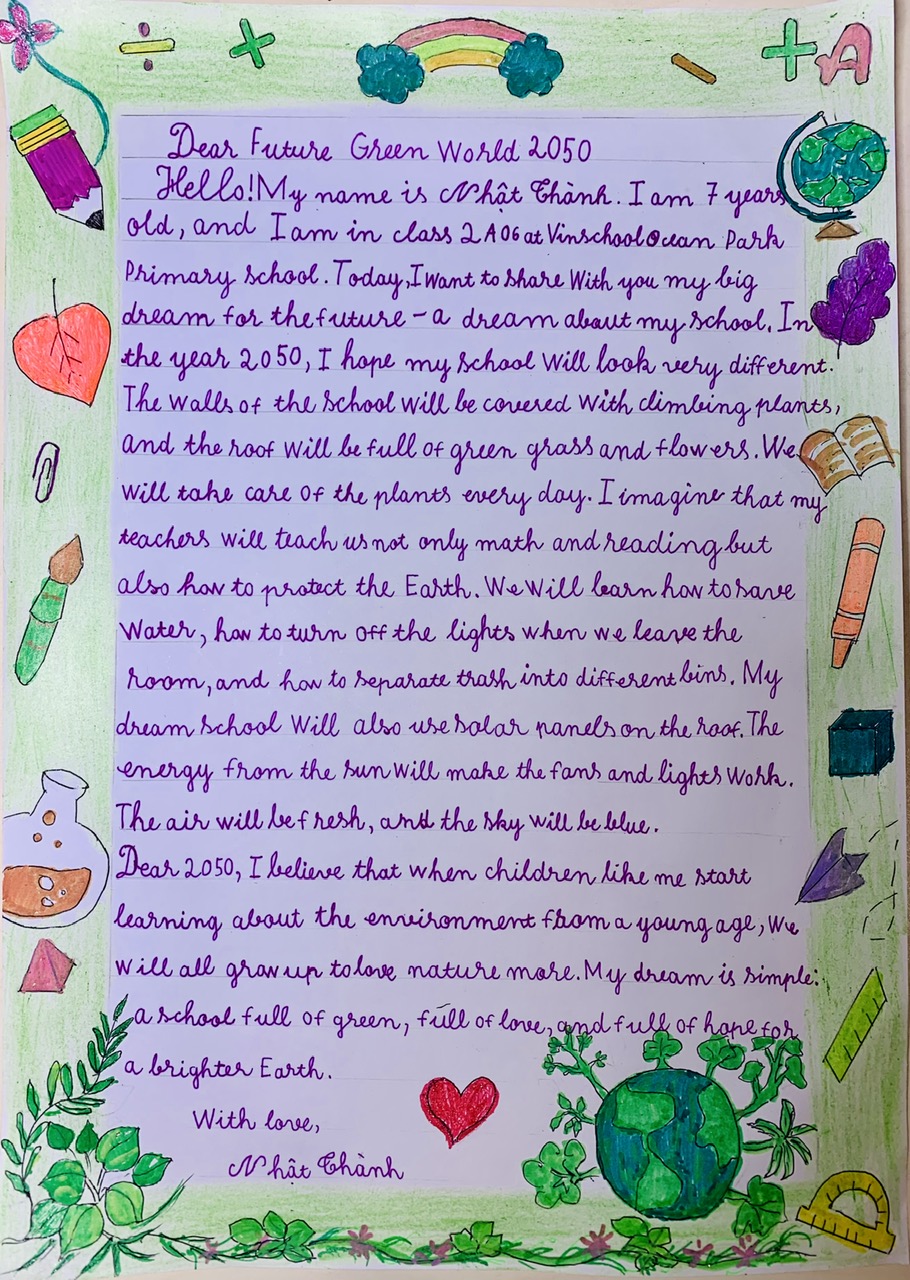 Dear Future Green World 2050
Hello! My name is Nhật Thành. I am 7 years
old, and I am in class 2A06 at Vinschool Ocean Park
Primary school. Today, I want to share with you my big
dream for the future – a dream about my school. In
the year 2050, I hope my school will look very different.
The walls of the school will be covered with climbing plants,
and the roof will be full of green grass and flowers. We
will take care of the plants every day. I imagine that my
teachers will teach us not only math and reading but
also how to protect the Earth. We will learn how to save
water, how to turn off the lights when we leave the
room, and how to separate trash into different bins. My
dream school will also use solar panels on the roof. The
energy from the sun will make the fans and lights work.
The air will be fresh, and the sky will be blue.
Dear 2050, I believe that when children like me start
learning about the environment from a young age, we
will all grow up to love nature more. My dream is simple:
a school full of green, full of love, and full of hope for
a brighter Earth.
With love,
Nhật Thành
A